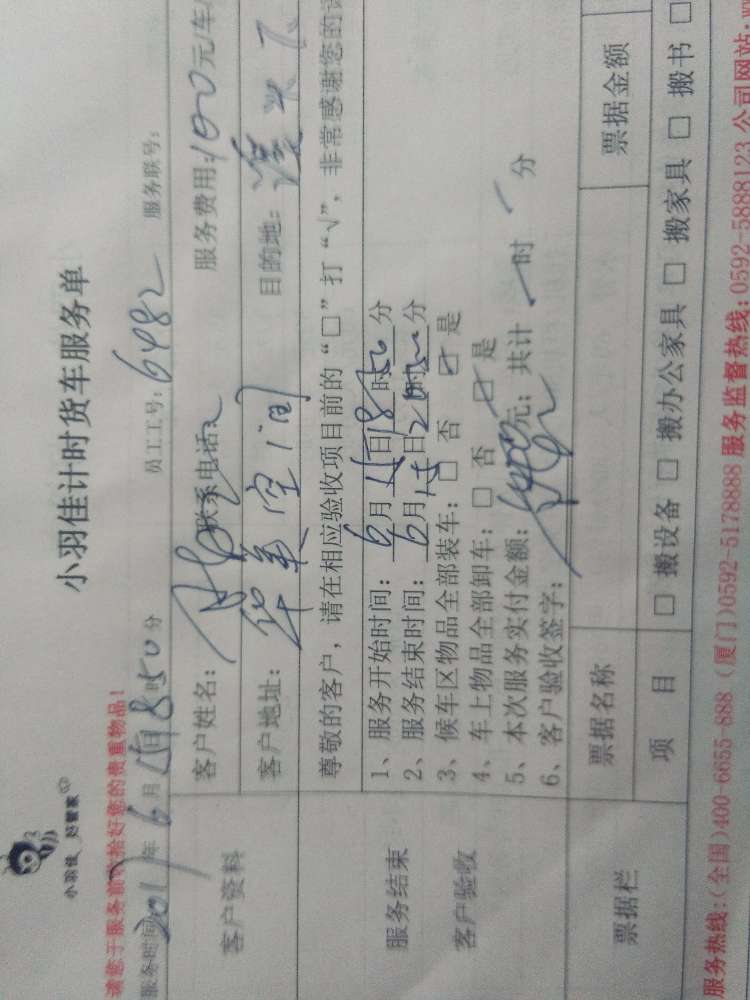 小羽佳 好管家
小羽佳计时货车服务单
请您于服务前收拾好您的贵重物品!
服务时间:2017年6月15日8时50分 员工工号:6482 服务联号:
客户资料
客户姓名: 联系电话: 服务费用:100元/车
客户地址:华美空间 目的地:
尊敬的客户,请在相应验收项目前的“□”打“√”,非常感谢您的
服务结束
客户验收
1、服务开始时间:6月15日8时50分
2、服务结束时间:6月15日 时 分
3、候车区物品全部装车:□ 否 ☑ 是
4、车上物品全部卸车:□ 否 ☑ 是
5、本次服务实付金额: 元;共计 时 分
6、客户验收签字:
票据栏 票据名称 票据金额
项 目 □ 搬设备 □ 搬办公家具 □ 搬家具 □ 搬书 □
服务热线:(全国)400-6655-888 (厦门)0592-5178888 服务监督热线:0592-5888123 公司网站: